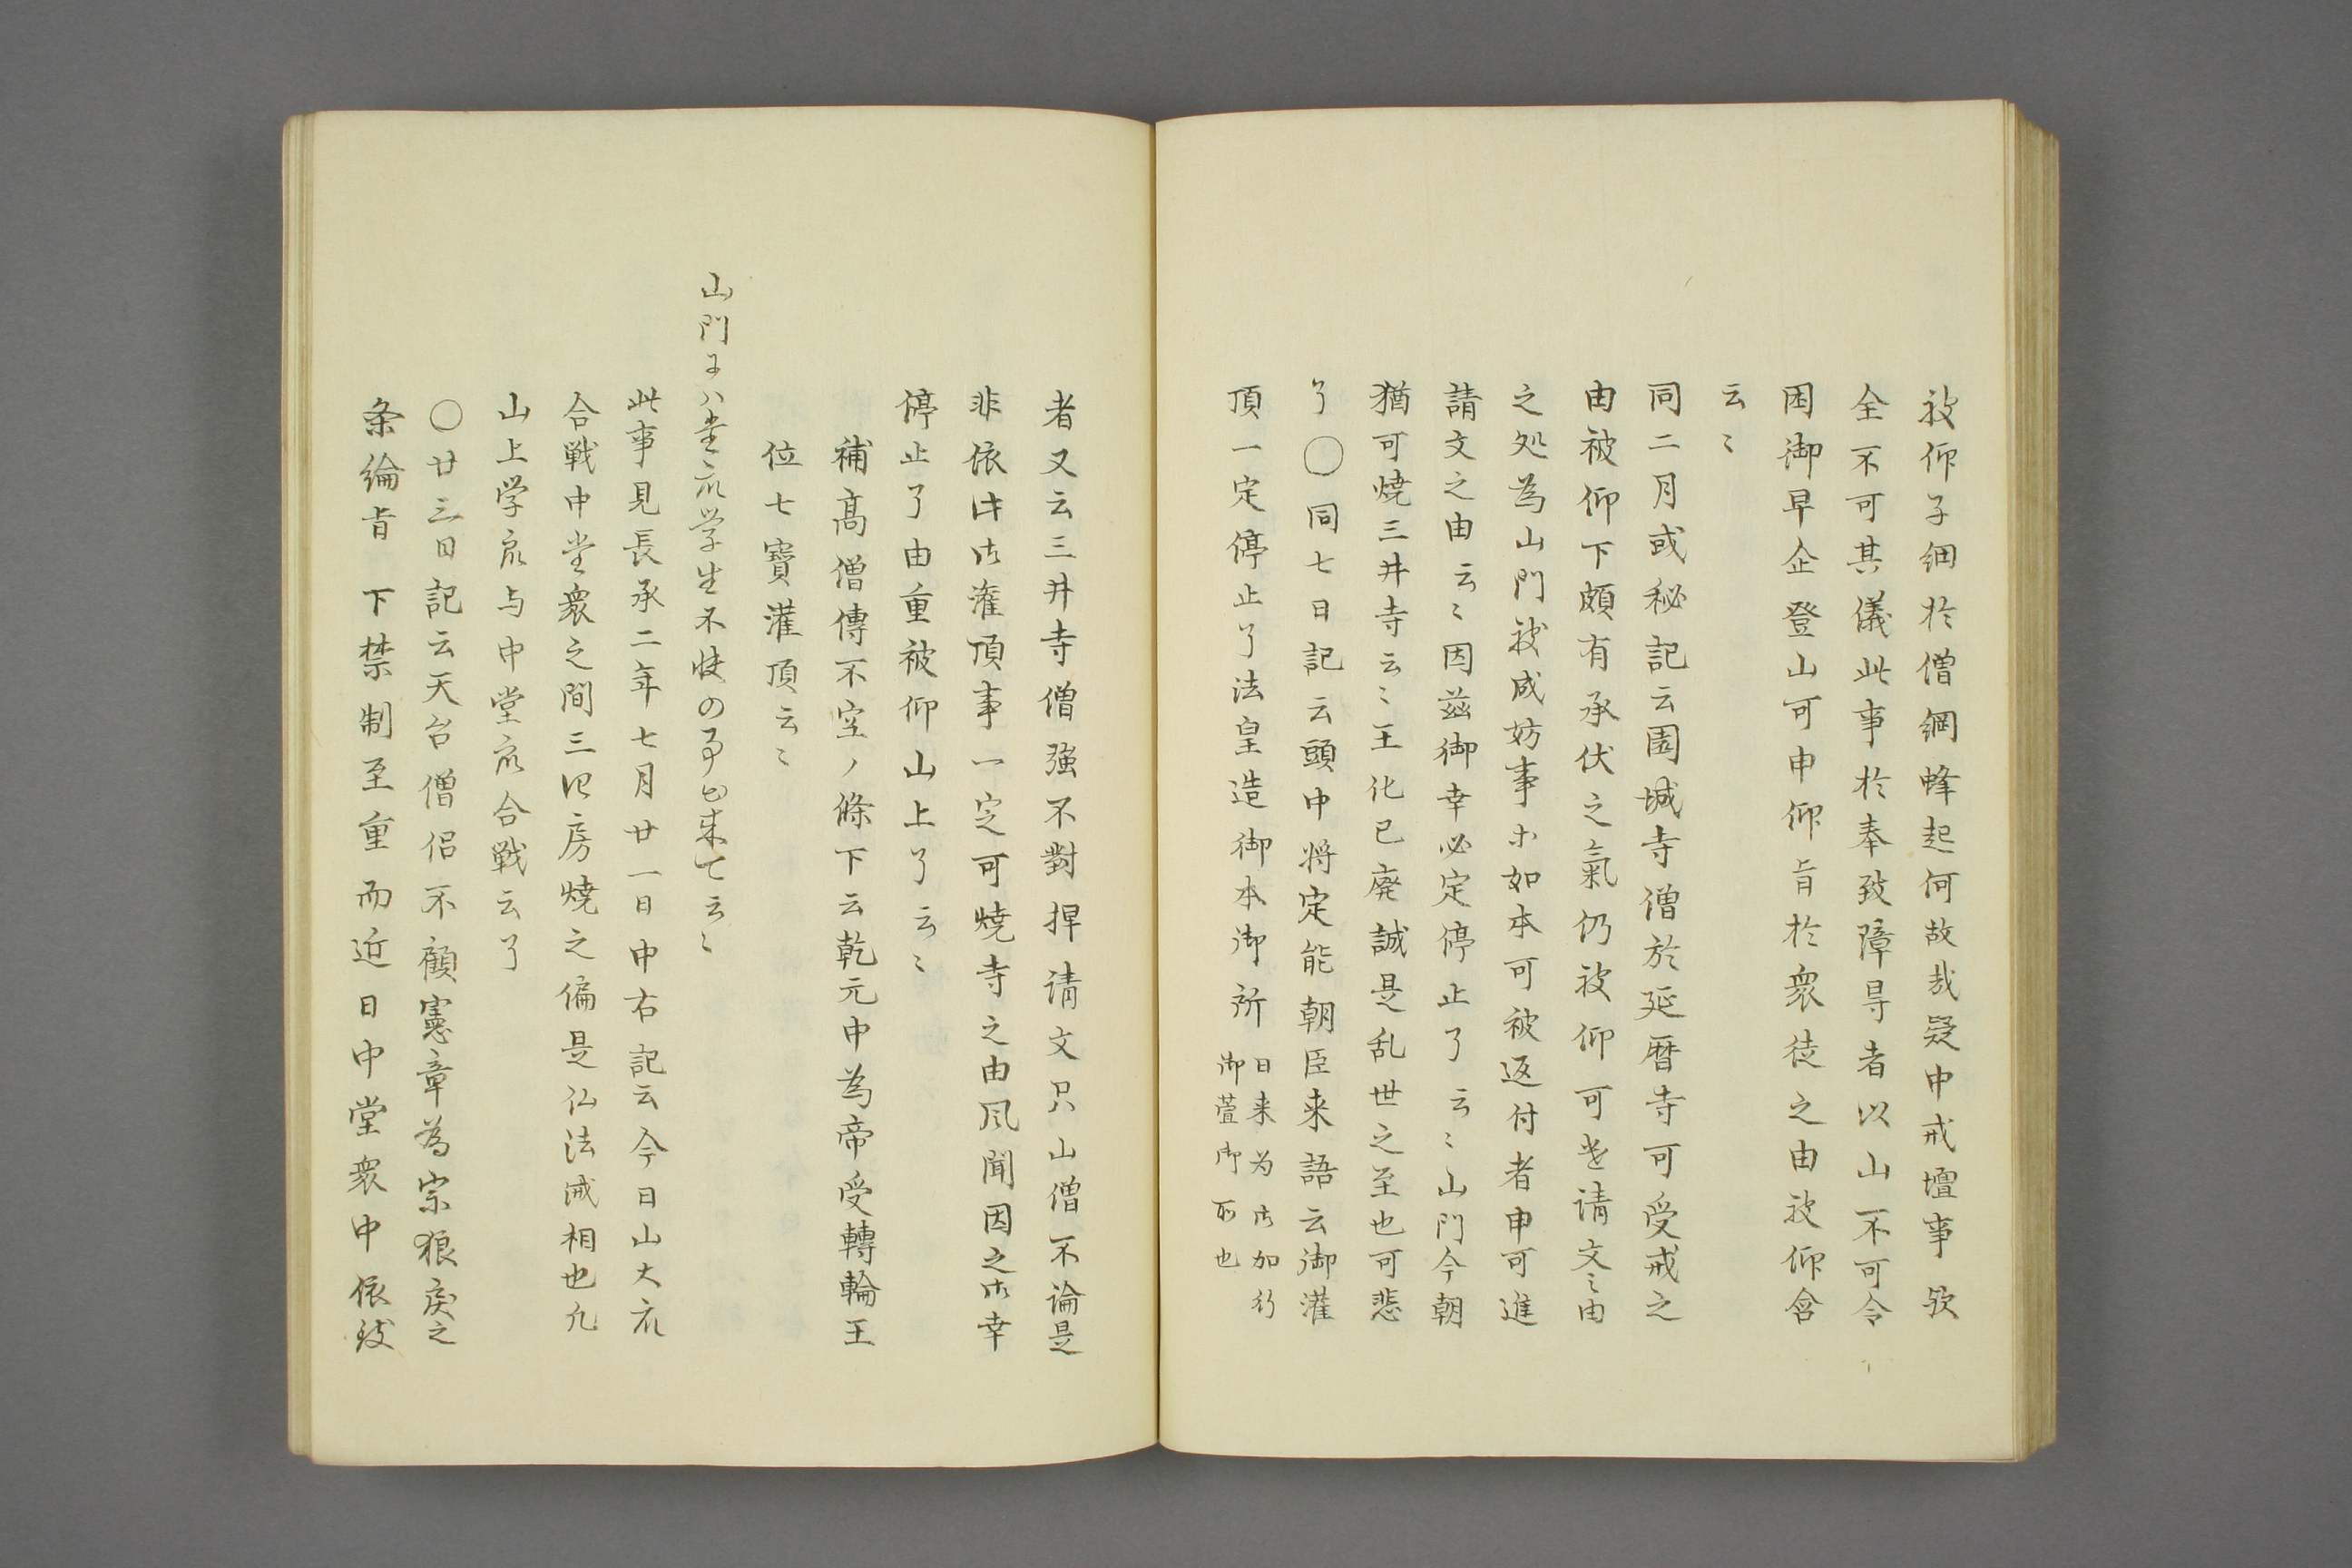 被仰子細於僧綱蜂起何故哉疑申戒壇事歟
全不可其儀此事於奉致障㝵者以山不可令
困御早企登山可申仰旨於衆徒之由被仰含
云〻
同二月或秘記云園城寺僧於延暦寺可受戒之
由被仰下頗有承伏之氣仍被仰可進請文之由
之処為山門被成妨事ホ如本可被返付者申可進
請文之由云〻因茲御幸必定停止了云〻山門今朝
猶可焼三井寺云〻王化已廃誠是乱世之至也可悲
了〇同七日記云頭中将定能朝臣来語云御灌
頂一定停止了法皇造御本御所
日来为御加行
御萱御所也
者又云三井寺僧強不對捍请文只山僧不論是
非依此御灌頂事一定可焼寺之由风聞因之御幸
停止了由重被仰山上了云〻
補高僧傳不空ノ條下云乾元中為帝受轉輪王
位七寶灌頂云〻
山門ニハ堂衆学生不快の事出来て云〻
此事見長承二年七月廿一日中右記云今日山大衆
合戦中堂衆之間三御房焼之偏是仏法滅相也凡
山上学衆与中堂衆合戦云了
〇廿三日記云天台僧侶不顧憲章為宗狼戻之
条綸旨 下禁制至重而近日中堂衆中依致